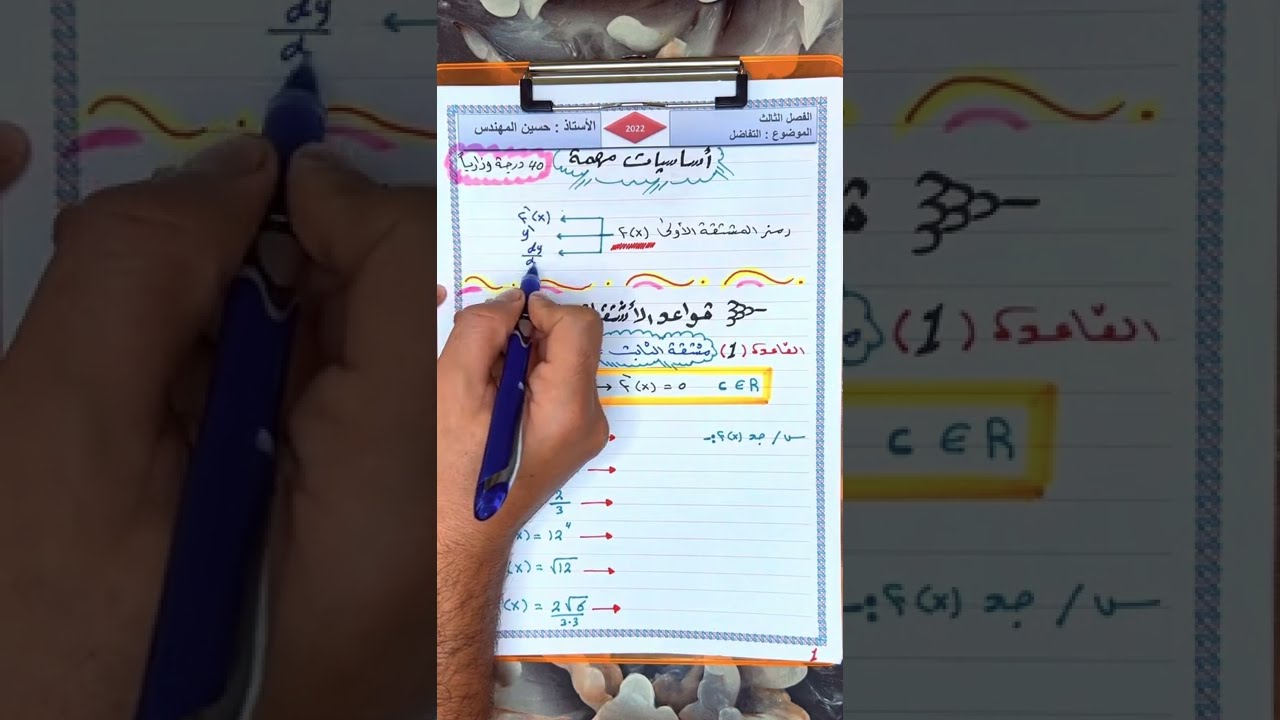 الفصل الثالث
الموضوع : التفاضل
2022
الأستاذ : حسين المهندس
أساسيات مهمة
40 درجة وزارياً
رمز المشتقة الأولى f(x)
f'(x)
y'
dy/d
قواعد
القاعدة (1) مشتقة الثابت
f'(x) = 0 c ∈ R
س/ جد f'(x) :-
2/3
x) = 12⁴
(x) = √12
(x) = 2√6/3·3
1